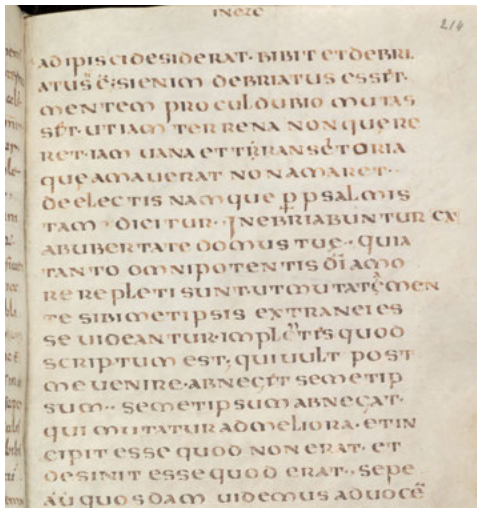 IN EZC
214
adipisci desiderat· bibit et debri
atus ÷; si enim debriatus esset·
mentem procul dubio mutas
set· ut iam terrena non quęre
ret· iam uana et transitoria
quę amauerat non amaret··
de electis namque ꝑ psalmis
tam dicitur·· Inebriabuntur ex
abubertate domus tuę·· quia
tanto omnipotentis dī amo
re repleti sunt· ut mutatę men
te sibimetipsis extranei es
se uideantur· impletis quod
scriptum est; qui uult post
me uenire· abneget semetip
sum·· semetipsum abnegat·
qui mutatur ad meliora· et in
cipit esse quod non erat· et
desinit esse quod erat·· sepe
quosdam uidemus ad uocē